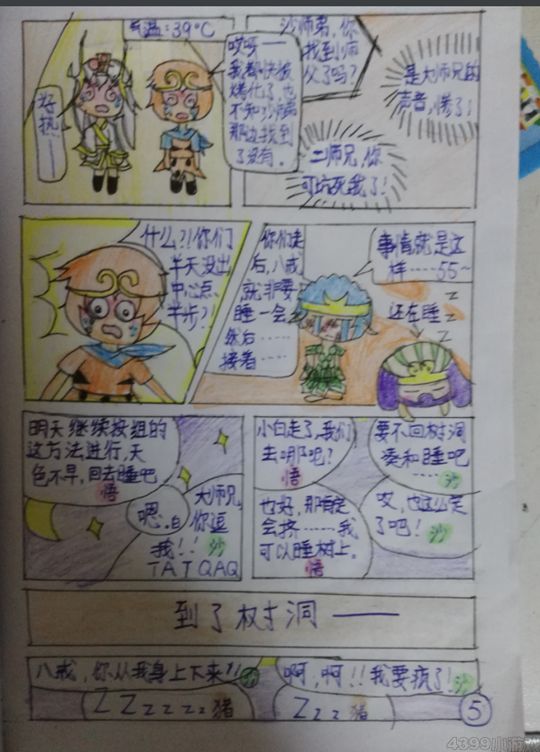 气温:39°C
好热……
哎呀——
我都快被
烤化了,也
不知沙师弟
那边找到
了没有。
沙师弟,你
找到师
父了吗?
是大师兄的
声音,惨了!
二师兄,你
可坑死我了!
什么?!你们
半天没出
中心点
半步?!
你们走
后,八戒
就非要
睡一会
然后……
接着……
事情就是这
样……55~
还在睡
z
z
z
明天继续按组的
这方法进行,天
色不早,回去睡吧
悟
嗯.白
大师兄
你逗
我!!沙
TAT QAQ
小白走了,我们
去哪呢?
悟
要不回树洞
凑和睡吧
……沙
也好,那肯定
会挤……我
可以睡树上。
悟
哎,也这么定
了吧!沙
到了树洞——
八戒,你从我身上下来!!悟
Z Z z z z z 猪
啊,啊!!我要疯了!沙
Z z z 猪
⑤